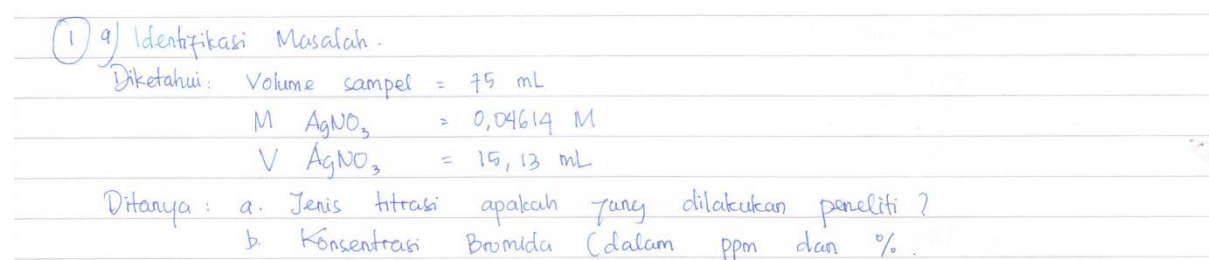 1 a) Identifikasi Masalah.
Diketahui: Volume sampel = 75 mL
M AgNO₃ = 0,04614 M
V AgNO₃ = 15,13 mL
Ditanya : a. Jenis titrasi apakah yang dilakukan peneliti ?
b. Konsentrasi Bromida (dalam ppm dan %.